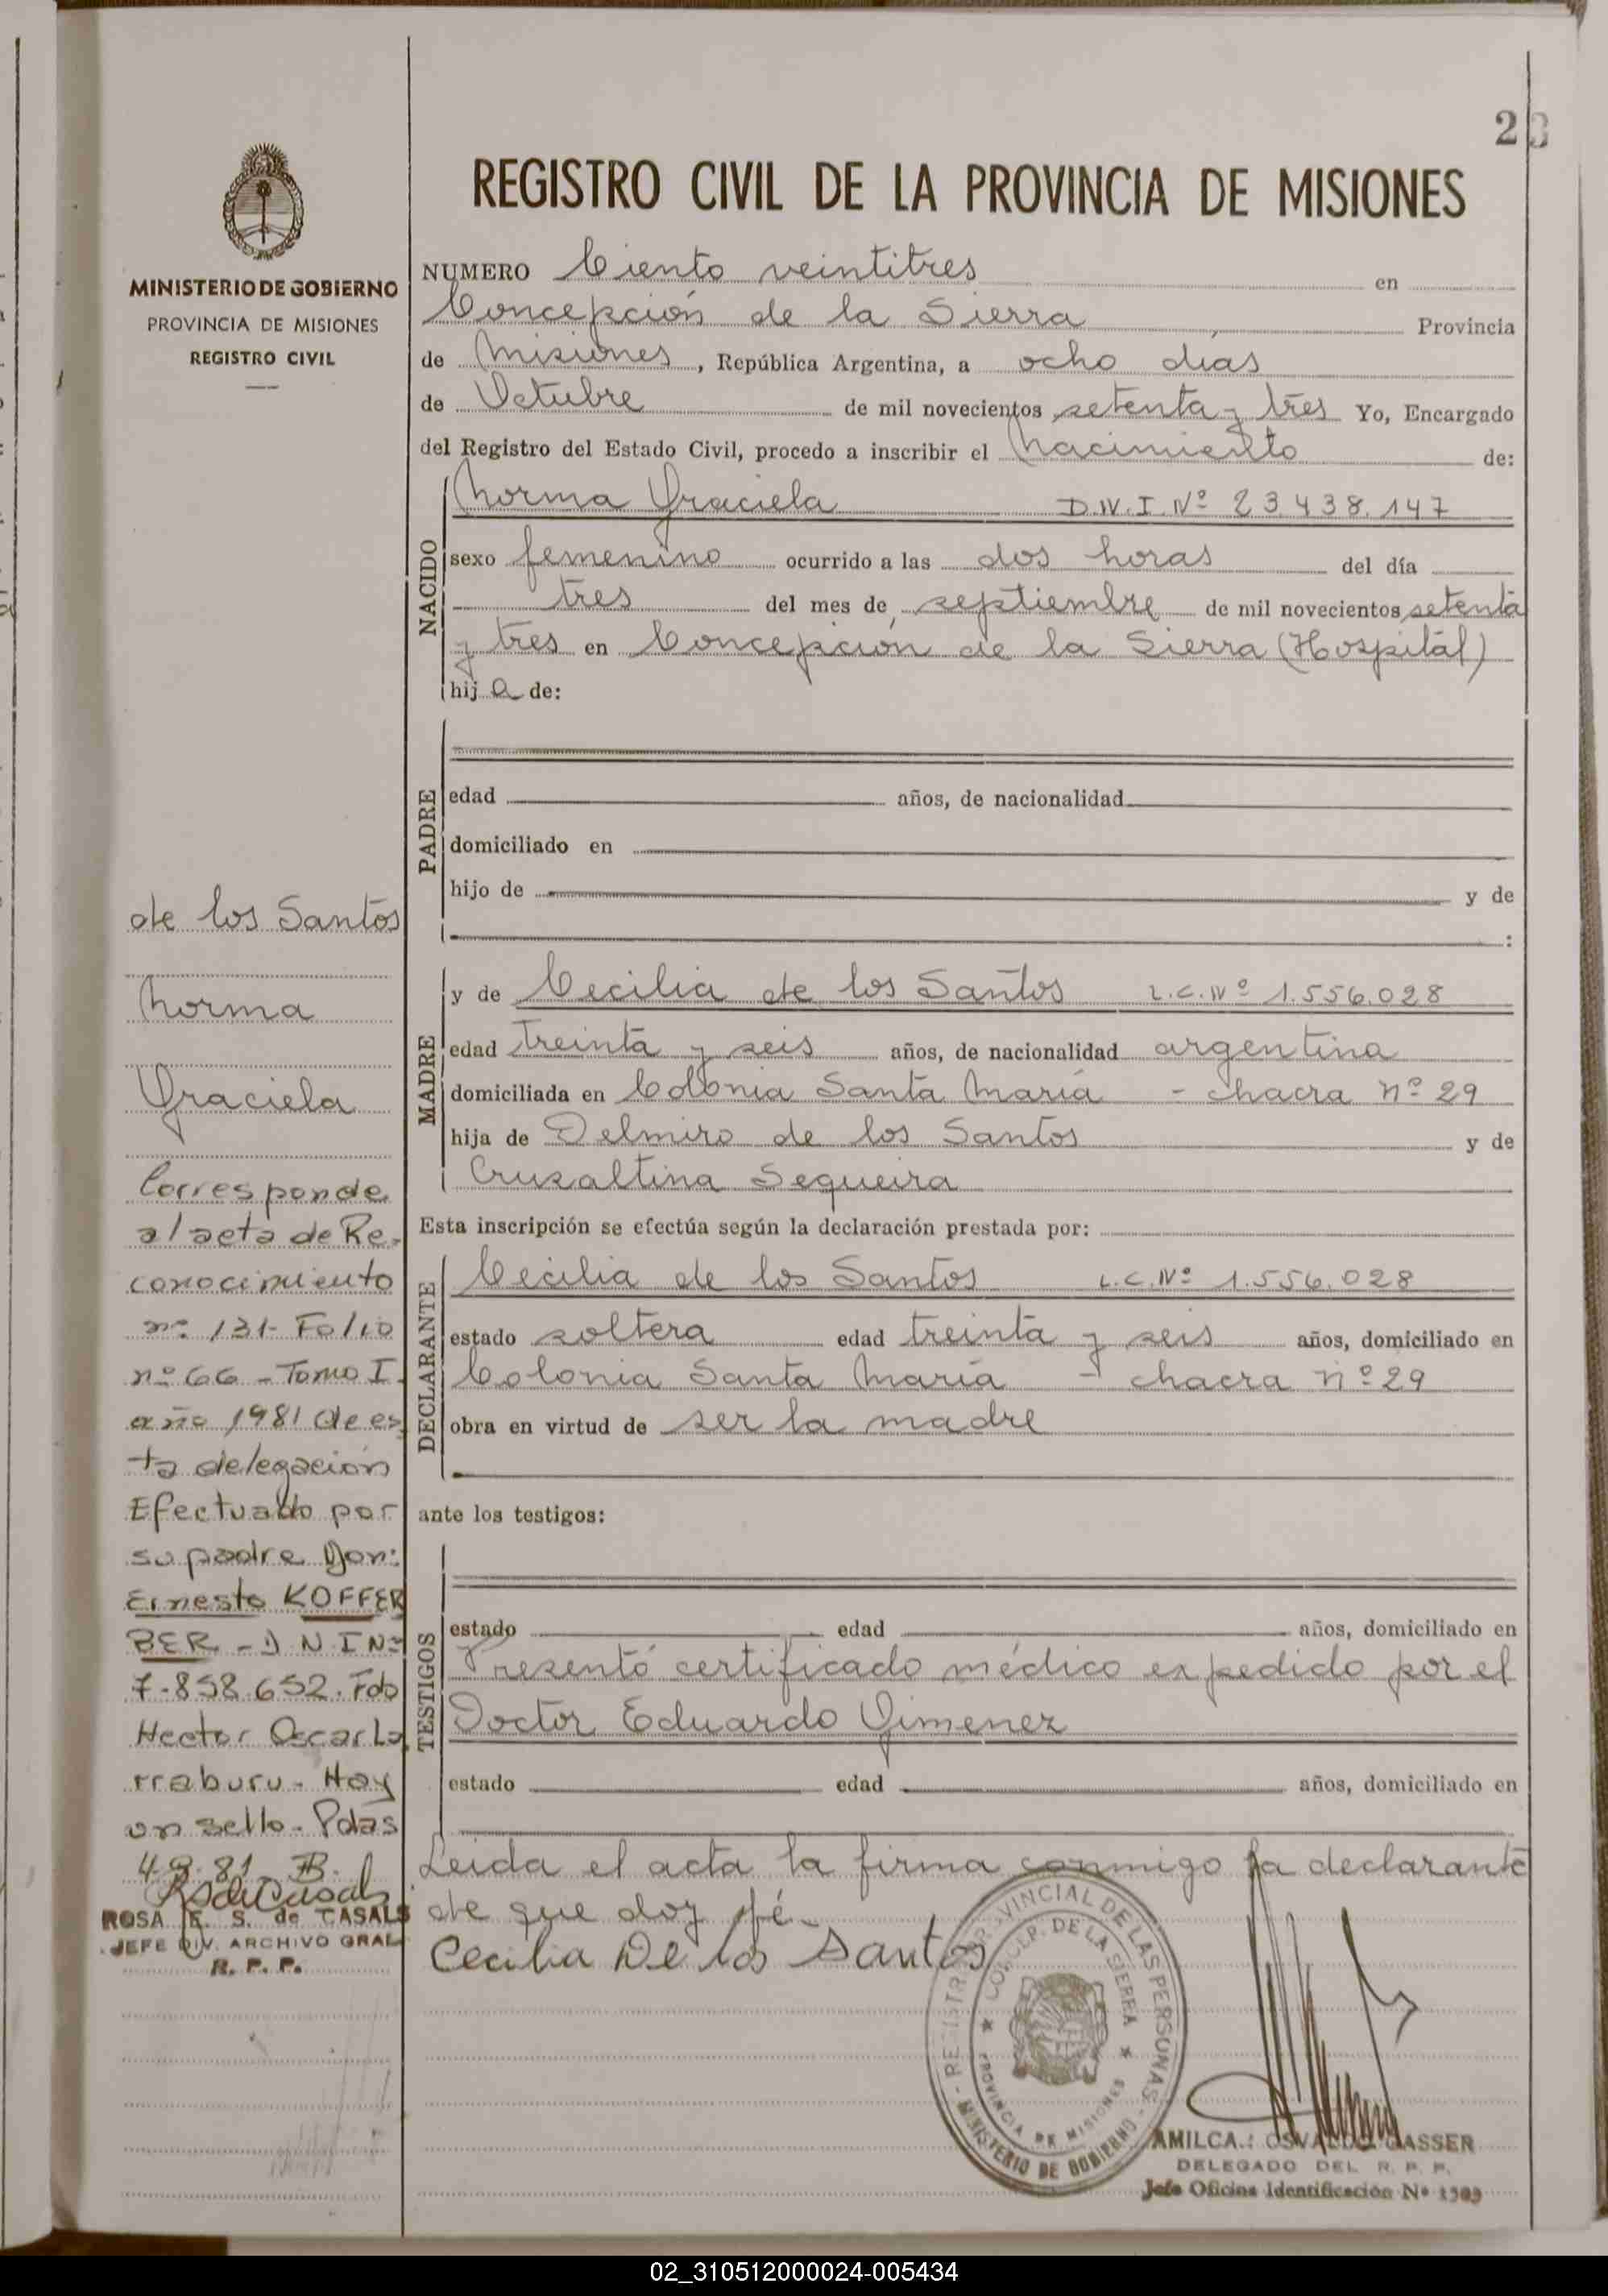 23
MINISTERIO DE GOBIERNO
PROVINCIA DE MISIONES
REGISTRO CIVIL
REGISTRO CIVIL DE LA PROVINCIA DE MISIONES
NUMERO Ciento veintitres en
Concepción de la Sierra Provincia
de Misiones, República Argentina, a ocho días
de Octubre de mil novecientos setenta y tres Yo, Encargado
del Registro del Estado Civil, procedo a inscribir el Nacimiento de:
NACIDO
Norma Graciela D.N.I. Nº 23.438.147
sexo femenino ocurrido a las dos horas del día
tres del mes de septiembre de mil novecientos setenta
y tres en Concepción de la Sierra (Hospital)
hij a de:
PADRE
edad años, de nacionalidad
domiciliado en
hijo de y de
:
MADRE
y de Cecilia de los Santos L.C. Nº 1.556.028
edad Treinta y seis años, de nacionalidad argentina
domiciliada en Colonia Santa María - chacra nº 29
hija de Delmiro de los Santos y de
Cruzaltina Sequeira
Esta inscripción se efectúa según la declaración prestada por:
DECLARANTE
Cecilia de los Santos L.C. Nº 1.556.028
estado soltera edad treinta y seis años, domiciliado en
Colonia Santa María - chacra nº 29
obra en virtud de ser la madre
ante los testigos:
TESTIGOS
estado edad años, domiciliado en
Presentó certificado médico expedido por el
Doctor Eduardo Gimenez
estado edad años, domiciliado en
Leida el acta la firma conmigo la declarante
de que doy fé.
Cecilia De los Santos
de los Santos
Norma
Graciela
Corresponde
al acta de Re-
conocimiento
nº 131- Folio
nº 66 - Tomo I.
año 1981 de es
ta delegación
Efectuado por
su padre Don:
Ernesto KOFFER
BER - D N I Nº
7.858.652. Fdo
Hector Oscar La
rraburu - Hay
un sello - Pdas
4.9.81.
ROSA E. S. de CASALS
JEFE DIV. ARCHIVO GRAL.
R. P. P.
REGISTRO PROVINCIAL DE LAS PERSONAS
CONCEP. DE LA SIERRA
PROVINCIA DE MISIONES
MINISTERIO DE GOBIERNO
AMILCAR OSVALDO GASSER
DELEGADO DEL R. P. P.
Jefe Oficina Identificación Nº 1503
02_310512000024-005434